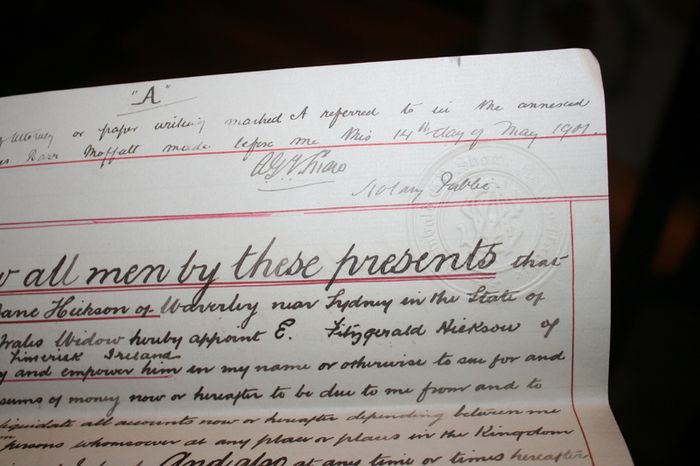 "A"
Attorney or paper writing marked A referred to in the annexed
Barr Moffatt made before me this 14th day of May 1901.
Notary Public
all men by these presents that
Jane Hickson of Waverley near Sydney in the State of
Wales Widow hereby appoint E. Fitzgerald Hickson of
Limerick Ireland
and empower him in my name or otherwise to sue for and
sums of money now or hereafter to be due to me from and to
liquidate all accounts now or hereafter depending between me
persons whomsoever at any place or places in the Kingdom
And also at any time or times hereafter